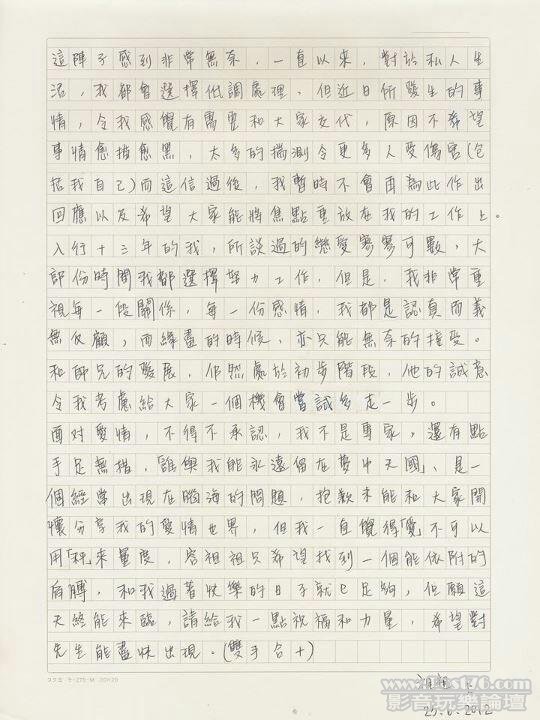 這陣子感到非常無奈，一直以來，對於私人生
活，我都會選擇低調處理，但近日所發生的事
情，令我感覺有需要和大家交代，原因不希望
事情愈描愈黑，太多的揣測令更多人受傷害(包
括我自己)而這信過後，我暫時不會再為此作出
回應以及希望大家能將焦點重放在我的工作上。
入行十三年的我，所談過的戀愛寥寥可數，大
部份時間我都選擇努力工作，但是，我非常重
視每一段關係，每一份感情，我都是認真而義
無反顧，而緣盡的時候，亦只能無奈的接受。
和師兄的發展，仍然處於初步階段，他的誠意
令我考慮給大家一個機會嘗試多走一步。
面对愛情，不得不承認，我不是專家，還有點
手足無措，「誰與我能永遠留在夢中天國」，是一
個經常出現在腦海的問題，抱歉未能和大家開
懷分享我的愛情世界，但我一直覺得「愛」不可以
用「秤」來量度，容祖祖只希望找到一個能依附的
肩膊，和我過著快樂的日子就已足夠，但願這
天終能來臨，請給我一點祝福和力量，希望對
先生能盡快出現。(雙手合十)
25.6.2012
コクヨ ケ-75N 20×20
影音玩樂論壇